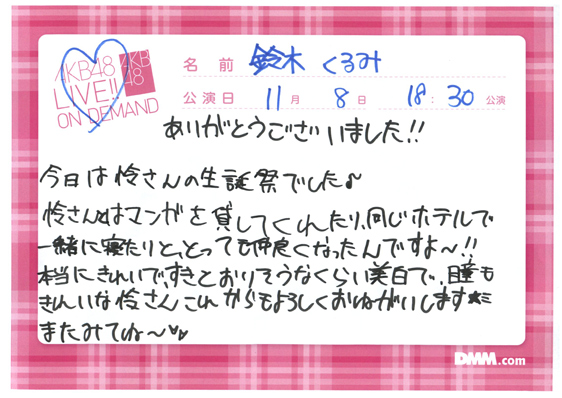 AKB48
LIVE!!
ON DEMAND
AKB
48
名前 鈴木 くるみ
公演日 11月 8日 18:30 公演
ありがとうございました!!
今日は怜さんの生誕祭でした♪
怜さんとはマンガを貸してくれたり、同じホテルで
一緒に寝たりと、とっても仲良くなったんですよ〜!!
本当にきれいで、すきとおりそうなくらい美白で、瞳も
きれいな怜さんこれからもよろしくおねがいします☆ミ
またみてね〜♡♡
DMM.com